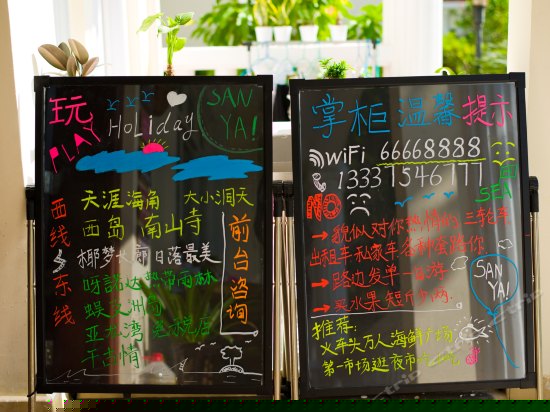 玩
PLAY
Holiday
SAN
YA!
西线
天涯海角 大小洞天
西岛 南山寺
椰梦长廊日落最美
东线
呀諾达热带雨林
蜈支洲岛
亚龙湾 免税店
千古情
前台咨询
掌柜温馨提示
WiFi 66668888
13337546177
SEA
NO
→ 貌似对你热情的三轮车
出租车私家车各种蛮路你
→ 路边发单一日游
→ 买水果短斤少两.
SAN
YA!
推荐:
火车头万人海鲜广场
第一市场逛夜市